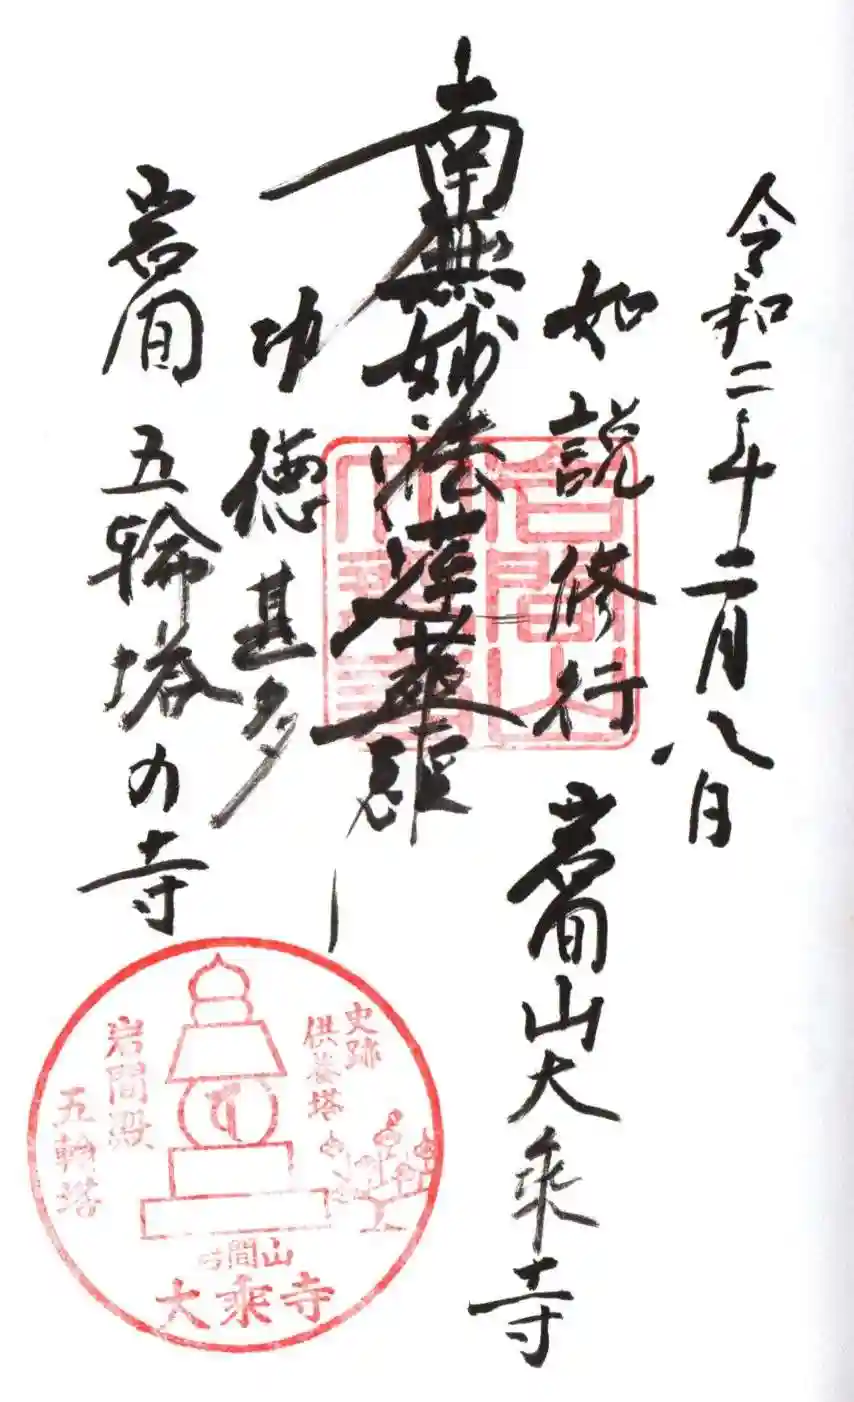 令和二年二月八日
如説修行
岩間山大乘寺
南無妙法蓮華経
功徳甚多
岩间 五輪塔の寺
岩間山
史跡
供養塔
岩間殿
五輪塔
岩間山
大乘寺